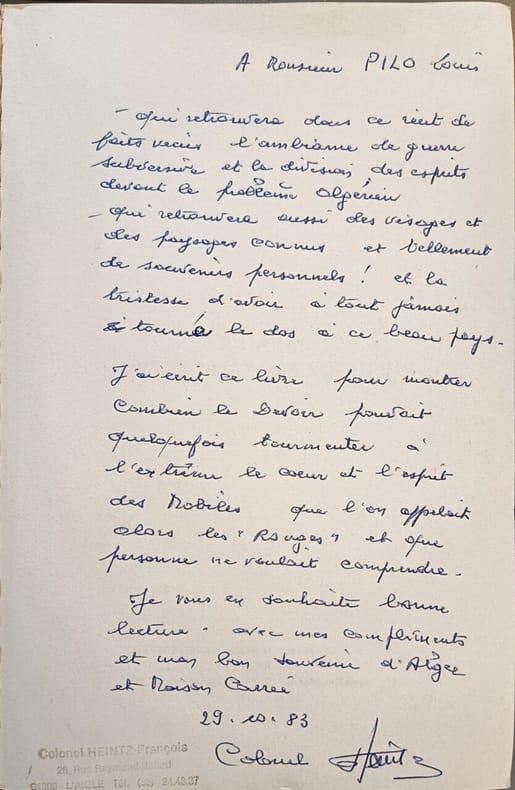 A Monsieur PILO Louis
- qui retrouvera dans ce récit de
faits vécus l'ambiance de guerre
subversive et la division des esprits
devant le problème Algérien
- qui retrouvera aussi des visages et
des paysages connus et tellement
de souvenirs personnels ! et la
tristesse d'avoir à tout jamais
tourné le dos à ce beau pays.
J'ai écrit ce livre pour montrer
combien le Devoir pouvait
quelquefois tourmenter à
l'extrême le coeur et l'esprit
des Mobiles que l'on appelait
alors les "Rouges" et que
personne ne voulait comprendre.
Je vous en souhaite bonne
lecture - avec mes compliments
et mon bon souvenir d'Alger
et Maison Carrée
29.10.83
Colonel Heintz
Colonel HEINTZ François
26, Rue Raymond
L'AIGLE Tél. 24.43.37